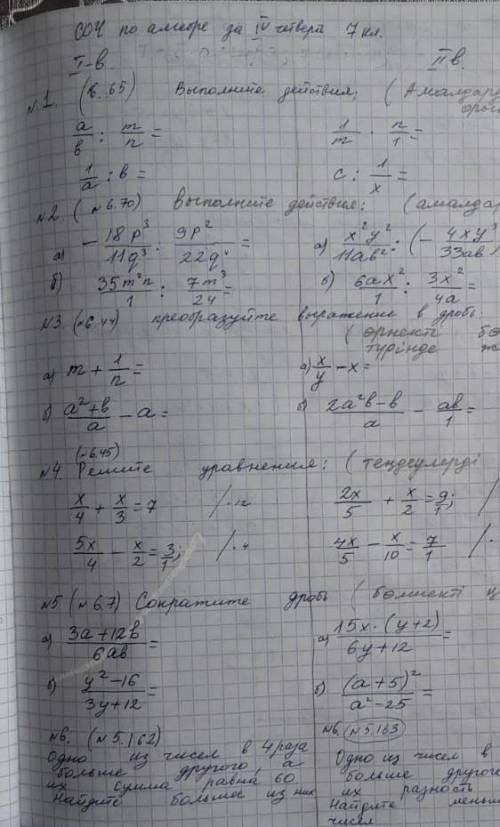 СОЧ по алгебре за IV четверть 7 кл.
I-в. II в.
№1. (6.65) Выполните действия; (Амалдарды
a/b : m/n = 1/m · n/1 =
1/a : b = c : 1/x =
№2. (№6.70) Выполните действия: (амалдар
а) - 18p³/11q³ : 9p²/22q⁴ = а) x²y²/11ab² : (- 4xy³/33ab
б) 35m²n/1 : 7m³/24 = б) 6ax²/1 : 3x²/4a =
№3. (№6.44) преобразуйте выражение в дробь
(өрнекті бө
түрінде ж
а) m + 1/n = а) x/y - x =
б) a²+b/a - a = б) 2a²b-b/a - ab/1 =
(№6.45)
№4. Решите уравнения: (теңдеулерді
x/4 + x/3 = 7 /·12 2x/5 + x/2 = 9/1; /
5x/4 - x/2 = 3/1; /·4 4x/5 - x/10 = 7/1 /·
№5 (№6.7) Сократите дробь (бөлшекті қ
а) 3a+12b/6ab = а) 15x·(y+2)/6y+12 =
б) y²-16/3y+12 = б) (a+5)²/a²-25 =
№6. (№5.162) №6 (№5.163)
Одно из чисел в 4 раза Одно из чисел в
больше другого, а больше другого
их сумма равна 60. их разность
Найдите большое из них Найдите меньш
чисел